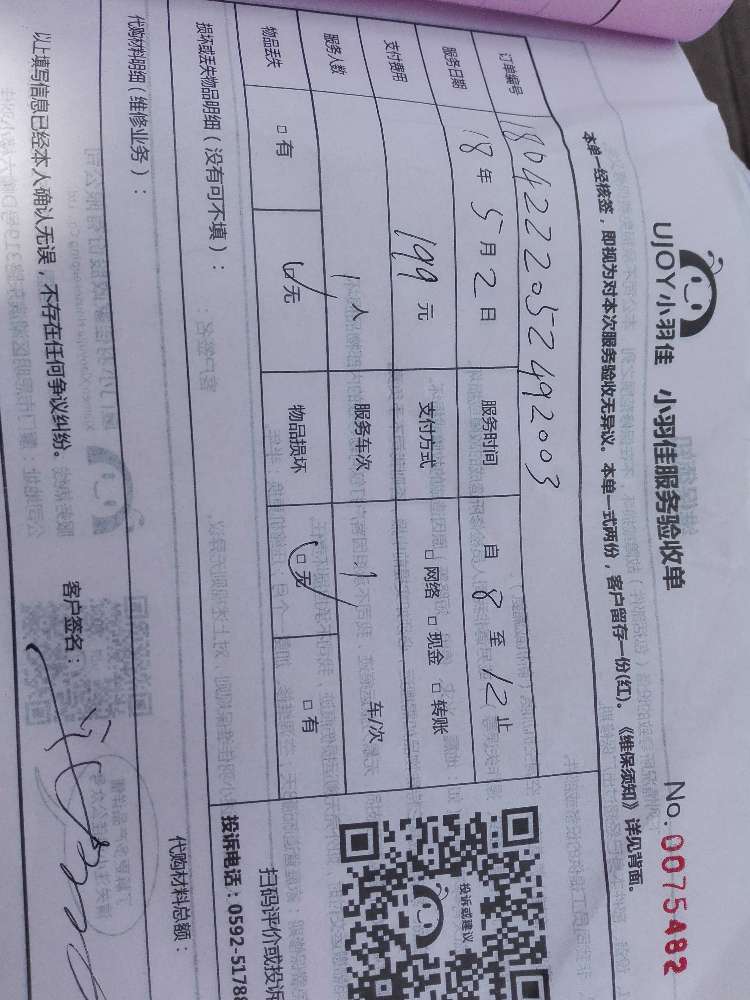 UJOY小羽佳 小羽佳服务验收单
No.0075482
本单一经核签，即视为对本次服务验收无异议。本单一式两份，客户留存一份(红)。《维保须知》详见背面。
订单编号 1804222052492003
服务日期 18年5月2日 服务时间 自8至12止
支付费用 199元 支付方式 □网络 □现金 □转账
服务人数 1人 服务车次 1 车/次
物品丢失 □有 □无 物品损坏 □无 □有
损坏或丢失物品明细（没有可不填）：
投诉或建议
扫码评价或投诉
投诉电话：0592-5178
代购材料明细（维修业务）：
代购材料总额：
以上填写信息已经本人确认无误，不存在任何争议纠纷。
客户签名：